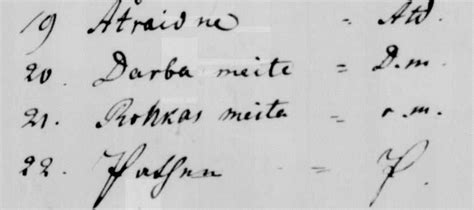 19 Atraidne = Atd.
20. Darba meite = D.m.
21. Rohkas meita = r.m.
22. = P.